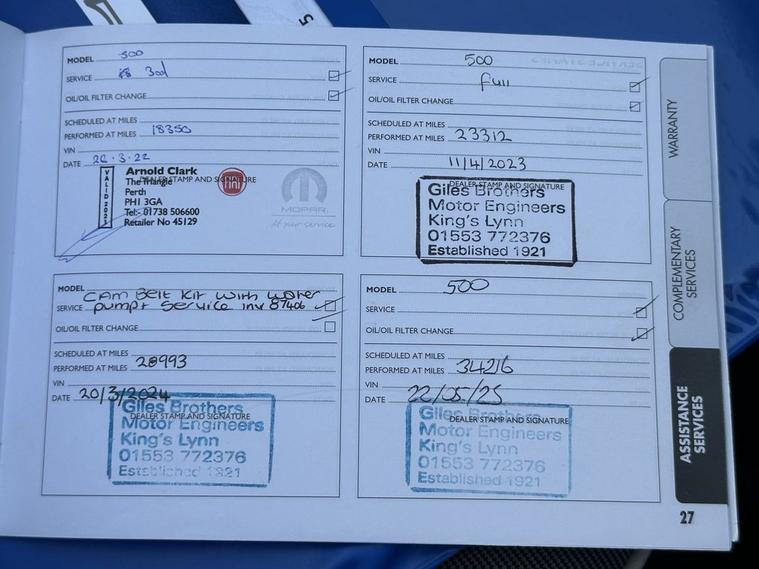 MODEL 500
SERVICE 3rd
OIL/OIL FILTER CHANGE
SCHEDULED AT MILES
PERFORMED AT MILES 18350
VIN
DATE 26.3.22
DEALER STAMP AND SIGNATURE
VALID 2022
Arnold Clark
The Triangle
Perth
PH1 3GA
Tel:- 01738 506600
Retailer No 45129
FIAT
MOPAR
At your service
MODEL 500
SERVICE full
OIL/OIL FILTER CHANGE
SCHEDULED AT MILES
PERFORMED AT MILES 23312
VIN
DATE 11/4/2023
DEALER STAMP AND SIGNATURE
Giles Brothers
Motor Engineers
King's Lynn
01553 772376
Established 1921
MODEL
CAM Belt Kit with water
SERVICE pump + Service inv 87406
OIL/OIL FILTER CHANGE
SCHEDULED AT MILES
PERFORMED AT MILES 28993
VIN
DATE 20/3/2024
DEALER STAMP AND SIGNATURE
Giles Brothers
Motor Engineers
King's Lynn
01553 772376
Established 1921
MODEL 500
SERVICE
OIL/OIL FILTER CHANGE
SCHEDULED AT MILES
PERFORMED AT MILES 34216
VIN
DATE 22/05/25
DEALER STAMP AND SIGNATURE
Giles Brothers
Motor Engineers
King's Lynn
01553 772376
Established 1921
WARRANTY
COMPLEMENTARY
SERVICES
ASSISTANCE
SERVICES
27